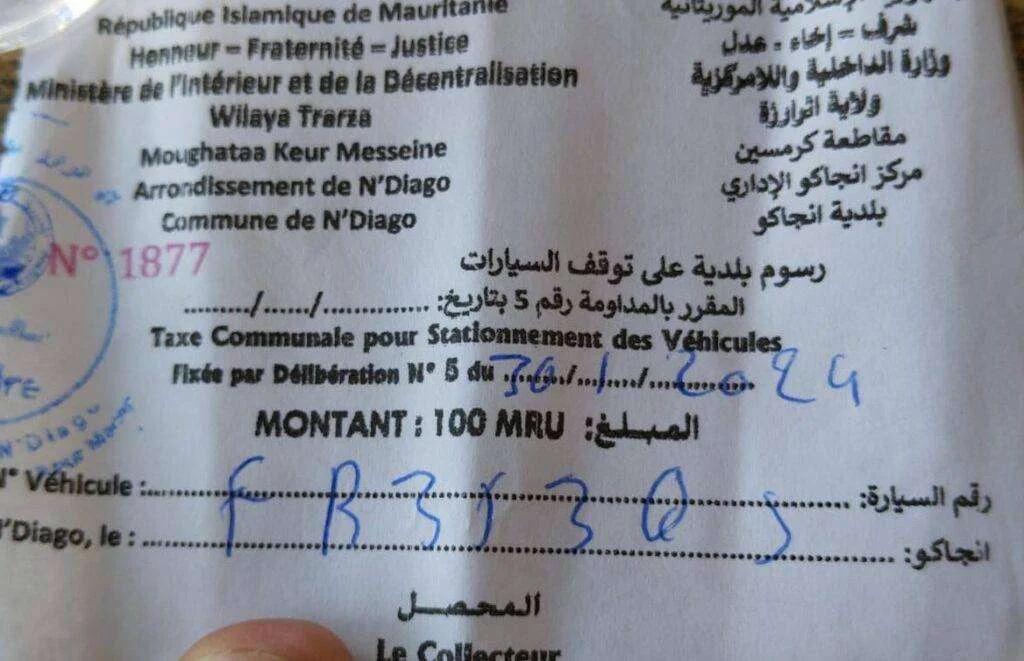 République Islamique de Mauritanie
الإسلامية الموريتانية
Honneur – Fraternité – Justice
شرف – إخاء - عدل
Ministère de l'Intérieur et de la Décentralisation
وزارة الداخلية واللامركزية
Wilaya Trarza
ولاية اترارزة
Moughataa Keur Messeine
مقاطعة كرمسين
Arrondissement de N'Diago
مركز انجاكو الإداري
Commune de N'Diago
بلدية انجاكو
N° 1877
رسوم بلدية على توقف السيارات
المقرر بالمداومة رقم 5 بتاريخ: ............../....../.........
Taxe Communale pour Stationnement des Véhicules
Fixée par Délibération N° 5 du 30/1/2024
MONTANT : 100 MRU المبلغ:
N° Véhicule : رقم السيارة:
N'Diago, le : انجاكو:
المحصل
Le Collecteur
N'Diago